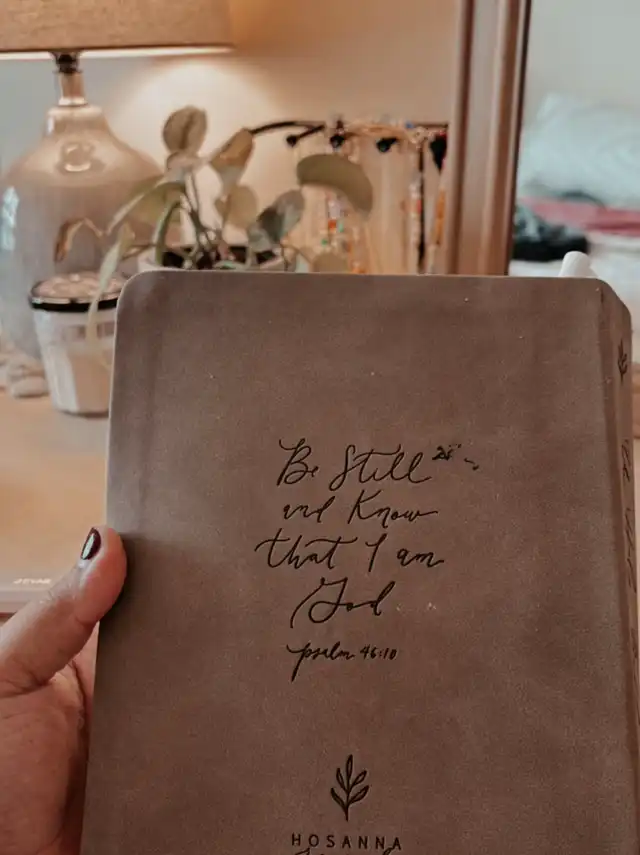 Be Still
and Know
that I am
God
psalm 46:10
HOSANNA